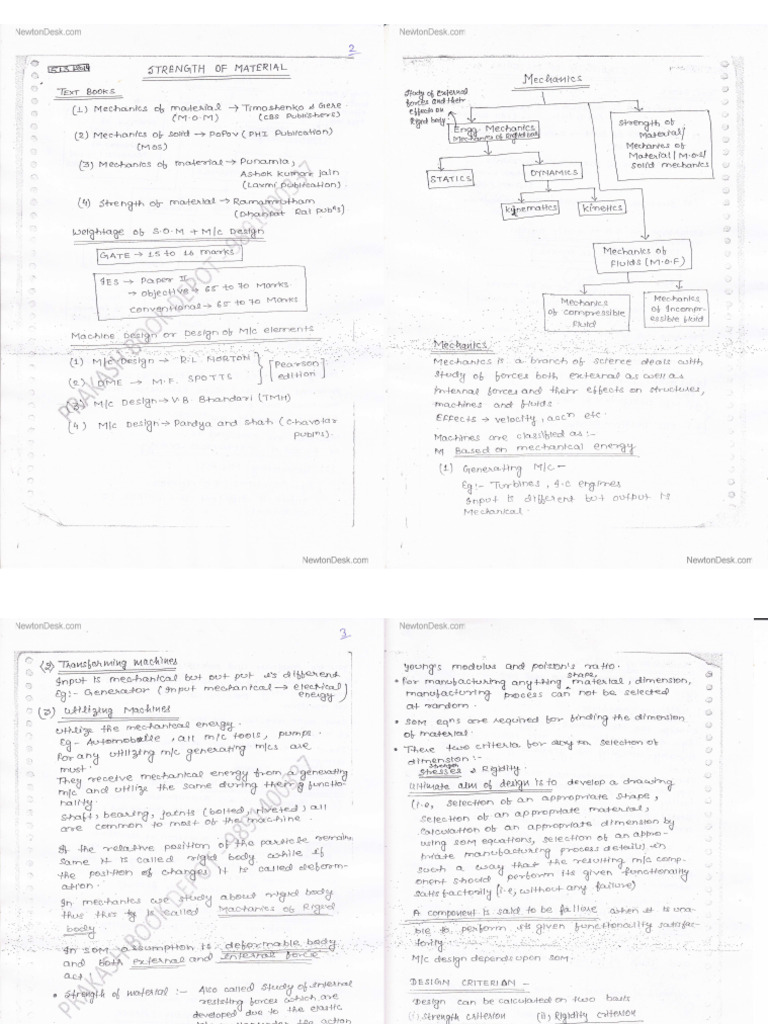 NewtonDesk.com
2
STRENGTH OF MATERIAL
TEXT BOOKS
(1) Mechanics of material → Timoshenko & Gere
(M.O.M) (CBS Publishers)
(2) Mechanics of solid → Popov (PHI Publication)
(MOS)
(3) Mechanics of material → Punamia,
Ashok kumar jain
(Laxmi publication).
(4) Strength of material → Ramamrutham
(Dhanpat Rai pubns)
Weightage of S.O.M + M/c Design
GATE → 15 to 16 marks.
IES → Paper II
→ objective → 65 to 70 Marks
conventional → 65 to 70 Marks
Machine Design or Design of M/c elements
(1) M/c Design → R.L. NORTON
(2) DME → M.F. SPOTTS
[Pearson edition]
(3) M/c Design → V.B. Bhandari (TMH)
(4) M/c Design → Pandya and Shah (Charotar
pubns).
PRAKASH BOOK DEPOT
NewtonDesk.com
NewtonDesk.com
Mechanics
Study of External
forces and their
effects on
Rigid body
Engg. Mechanics
Mechanics of Rigid body
Strength of
Material/
Mechanics of
Material/M.O.S/
Solid mechanics
STATICS
DYNAMICS
kinematics
kinetics
Mechanics of
Fluids (M.O.F)
Mechanics
of compressible
Fluid
Mechanics
of Incompr-
essible fluid
Mechanics
Mechanics is a branch of science deals with
study of forces both external as well as
internal forces and their effects on structures,
machines and fluids
Effects → velocity, accn etc.
Machines are classified as:-
Based on mechanical energy
(1) Generating M/c -
Eg:- Turbines, I.C engines
Input is different but output is
Mechanical.
NewtonDesk.com
NewtonDesk.com
3
(2) Transforming machines
Input is mechanical but out put is different
Eg:- Generator (Input mechanical → electrical
energy)
(3) Utilizing Machines
utilize the mechanical energy.
Eg- Automobile, all m/c tools, pumps.
For any utilizing m/c generating m/cs are
must.
They receive mechanical energy from a generating
m/c and utilize the same during their functio-
nality.
Shaft, bearing, joints (bolted, riveted) all
are common to most of the machine.
If the relative position of the particle remain
same it is called rigid body while if
the position of changes it is called deform-
ation.
In mechanics we study about rigid body
thus this is called Mechanics of Rigid
body
In SOM assumption is deformable body
and both external and internal force
act.
• Strength of material :- Also called study of internal
resisting forces which are
developed due to the elastic
PRAKASH BOOK DEPOT
NewtonDesk.com
young's modulus and poision's ratio.
• For manufacturing anything shape, material, dimension,
manufacturing process can not be selected
at random.
• SOM eqns are required for binding the dimension
of material.
• There two criteria for selection of
dimension:-
Strength
Stresses & Rigidity.
Ultimate aim of design is to develop a drawing
(i.e, selection of an appropriate shape,
selection of an appropriate material,
calculation of an appropriate dimension by
using som equations, selection of an appro-
priate manufacturing process details) in
such a way that the resulting m/c comp-
onent should perform its given functionality
satisfactorily (i.e, without any failure)
A component is said to be failure when it is una-
ble to perform its given functionality satisfac-
tority.
M/c design depends upon SOM.
DESIGN CRITERION -
Design can be calculated on two basis
(i) Strength criterion (ii) Rigidity criterion